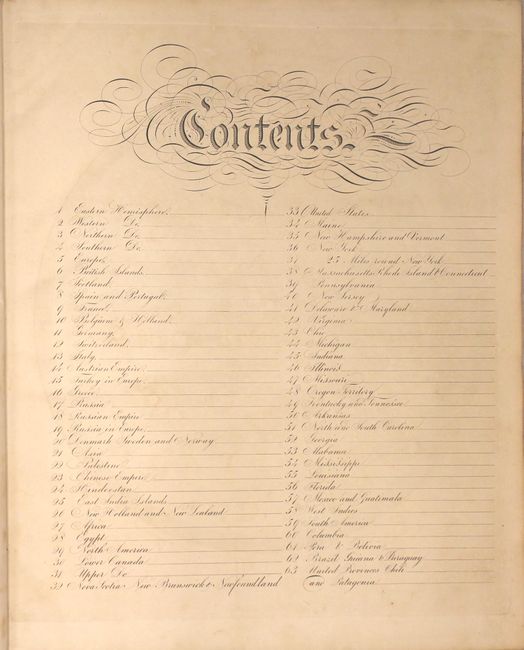 Contents.
1 Eastern Hemisphere.
2 Western Do.
3 Northern Do.
4 Southern Do.
5 Europe.
6 British Islands.
7 Scotland.
8 Spain and Portugal.
9 France.
10 Belgium & Holland.
11 Germany.
12 Switzerland.
13 Italy.
14 Austrian Empire.
15 Turkey in Europe.
16 Greece.
17 Russia
18 Russian Empire
19 Russia in Europe.
20 Denmark Sweden and Norway
21 Asia
22 Palestine
23 Chinese Empire
24 Hindoostan
25 East India Islands
26 New Holland and New Zealand
27 Africa
28 Egypt
29 North America
30 Lower Canada
31 Upper Do.
32 Nova Scotia New Brunswick & Newfoundland
33 United States.
34 Maine
35 New Hampshire and Vermont
36 New York
37 25 Miles round New York
38 Massachusetts Rhode Island & Connecticut
39 Pennsylvania
40 New Jersey
41 Delaware & Maryland
42 Virginia
43 Ohio
44 Michigan
45 Indiana
46 Illinois
47 Missouri
48 Oregon Territory
49 Kentucky and Tennessee
50 Arkansas
51 North and South Carolina
52 Georgia
53 Alabama
54 Mississippi
55 Louisiana
56 Florida
57 Mexico and Guatemala
58 West Indies
59 South America
60 Columbia
61 Peru & Bolivia
62 Brazil Guiana & Paraguay
63 United Provinces Chili
and Patagonia